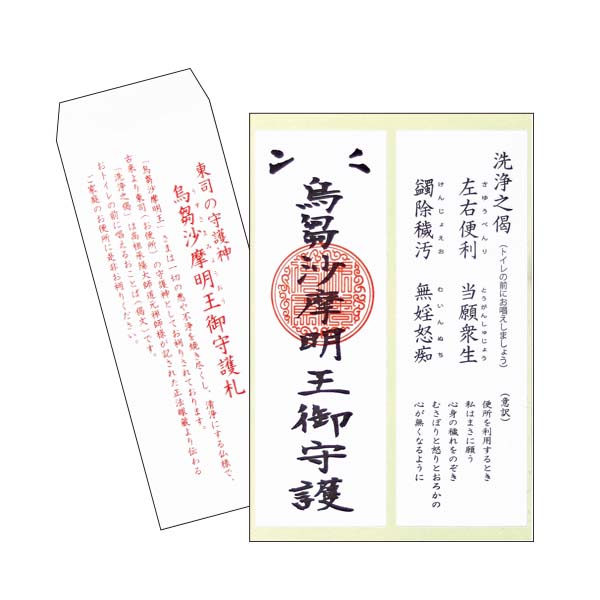 洗浄之偈(トイレの前にお唱えしましょう)
左右便利 当願衆生
さゆうべんり とうがんしゅじょう
蠲除穢汚 無婬怒痴
けんじょえお むいんぬち
(意訳)
便所を利用するとき
私はまさに願う
心身の穢れをのぞき
むさぼりと怒りとおろかの
心が無くなるように
烏芻沙摩明王御守護
東司の守護神
烏芻沙摩明王御守護札
うすさまみょうおう
「烏芻沙摩明王」さまは一切の悪や不浄を焼き尽くし、清浄にする仏様で、
古来より東司(お便所)の守護神としてお祠りされております。
「洗浄之偈」は高祖承陽大師道元禅師様が記された正法眼蔵より伝わる
おトイレの前に唱えるおことば(偈文)です。
ご家庭のお便所に是非お祠りください。